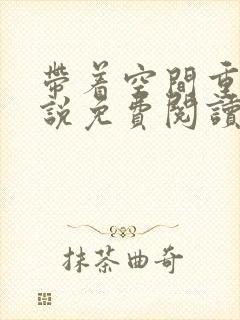 帶着空間重
說免費閱讀
抹茶曲奇